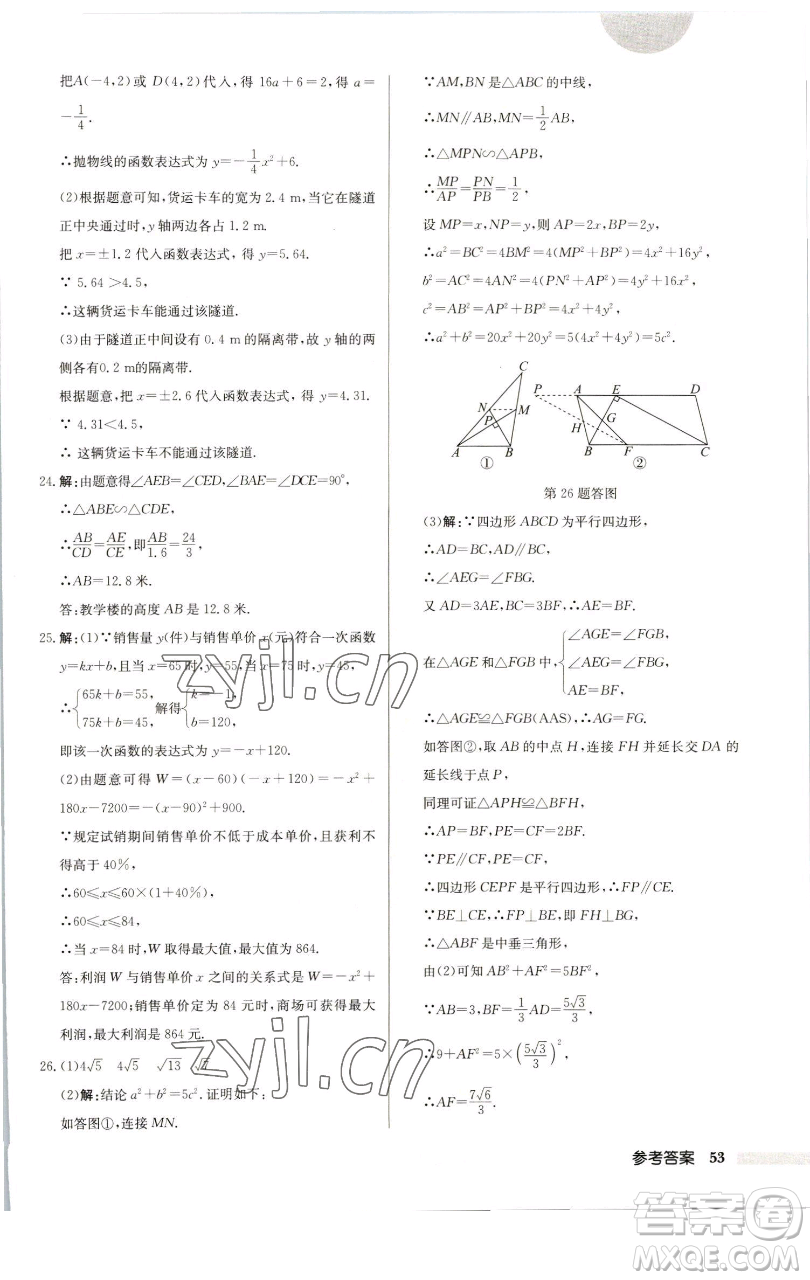 把A(-4,2)或 D(4,2)代入,得 16a+6=2,得 a=
-1/4.
∴抛物线的函数表达式为 y=-1/4x²+6.
(2)根据题意可知,货运卡车的宽为 2.4 m,当它在隧道
正中央通过时,y 轴两边各占 1.2 m.
把 x=±1.2 代入函数表达式,得 y=5.64.
∵ 5.64>4.5,
∴这辆货运卡车能通过该隧道.
(3)由于隧道正中间设有 0.4 m的隔离带,故 y 轴的两
侧各有0.2 m的隔离带.
根据题意,把 x=±2.6 代入函数表达式,得 y=4.31.
∵ 4.31<4.5,
∴ 这辆货运卡车不能通过该隧道.
24. 解:由题意得∠AEB=∠CED,∠BAE=∠DCE=90°,
∴△ABE∽△CDE,
∴AB/CD=AE/CE,即AB/1.6=24/3,
∴AB=12.8 米.
答:教学楼的高度 AB 是 12.8 米.
25. 解:(1)∵销售量 y(件)与销售单价 x(元)符合一次函数
y=kx+b,且当 x=65 时,y=55,当 x=75 时,y=45,
∴{65k+b=55, 75k+b=45, 解得{k=-1, b=120.
即该一次函数的表达式为 y=-x+120.
(2)由题意可得 W=(x-60)(-x+120)=-x²+
180x-7200=-(x-90)²+900.
∵规定试销期间销售单价不低于成本单价,且获利不
得高于 40%,
∴60≤x≤60×(1+40%),
∴60≤x≤84,
∴当 x=84 时,W 取得最大值,最大值为 864.
答:利润 W 与销售单价 x 之间的关系式是 W=-x²+
180x-7200;销售单价定为 84 元时,商场可获得最大
利润,最大利润是 864 元.
26. (1)4√5 4√5 √13 √7
(2)解:结论 a²+b²=5c². 证明如下:
如答图①,连接 MN.
∵AM,BN 是△ABC 的中线,
∴MN∥AB,MN=1/2AB,
∴△MPN∽△APB,
∴MP/AP=PN/PB=1/2,
设 MP=x,NP=y,则 AP=2x,BP=2y,
∴a²=BC²=4BM²=4(MP²+BP²)=4x²+16y²,
b²=AC²=4AN²=4(PN²+AP²)=4y²+16x²,
c²=AB²=AP²+BP²=4x²+4y²,
∴a²+b²=20x²+20y²=5(4x²+4y²)=5c².
C
N
M
P
A
B
①
P
A
E
D
H
G
B
F
C
②
第 26 题答图
(3)解:∵四边形 ABCD 为平行四边形,
∴AD=BC,AD∥BC,
∴∠AEG=∠FBG.
又 AD=3AE,BC=3BF,∴AE=BF.
在△AGE 和△FGB 中,{∠AGE=∠FGB, ∠AEG=∠FBG, AE=BF,
∴△AGE≌△FGB(AAS),∴AG=FG.
如答图②,取 AB 的中点 H,连接 FH 并延长交 DA 的
延长线于点 P,
同理可证△APH≌△BFH,
∴AP=BF,PE=CF=2BF.
∵PE∥CF,
∴四边形 CEPF 是平行四边形,∴FP∥CE.
∵BE⊥CE,∴FP⊥BE,即 FH⊥BG,
∴△ABF 是中垂三角形,
由(2)可知 AB²+AF²=5BF².
∵AB=3,BF=1/3AD=5√3/3,
∴9+AF²=5×(5√3/3)²,
∴AF=7√6/3.
参考答案 53
zyjl.cn
zyjl.cn
答案卷
MXQE.COM